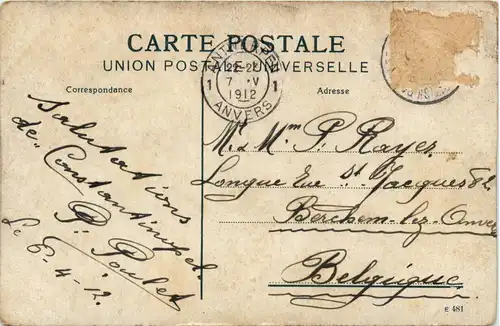 CARTE POSTALE
UNION POSTALE UNIVERSELLE
Correspondance
Adresse
ANTWERPEN
1 22-23 1
7 V
1912
ANVERS
Salutations
de Constantinople
P. Poulet
Le 6-4-12.
Mr & Mme P. Rayer
Longue Rue St Jacques 82
Berchem-lez-Anvers
Belgique
E 481